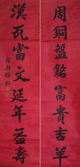 周銅盤銘富貴吉羊
漢瓦當文延年益壽